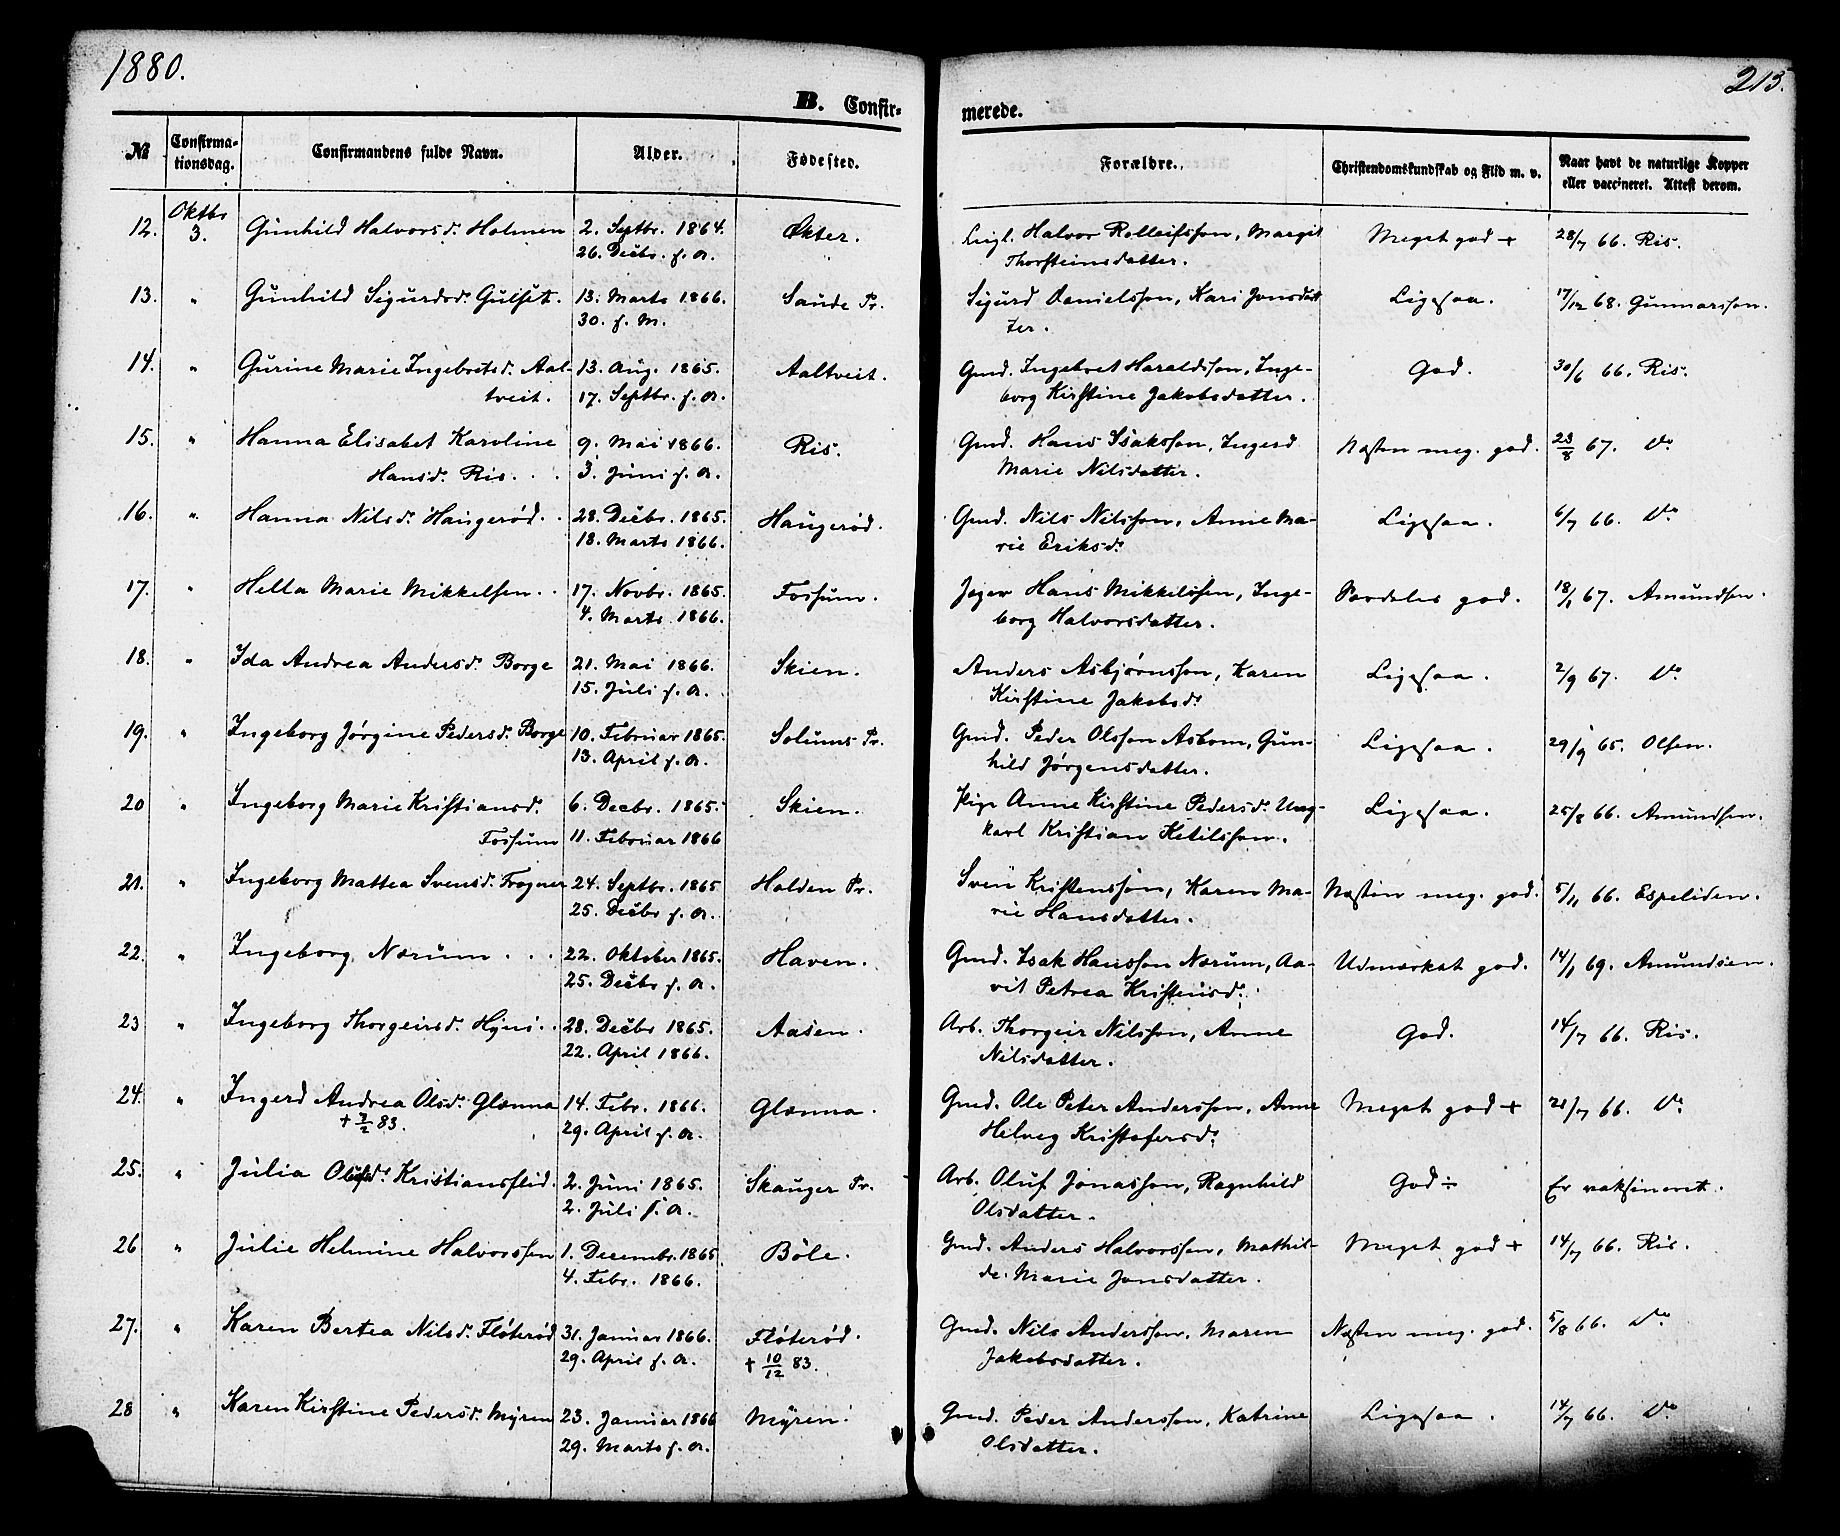 1880.
213.
B. Confir-
merede.
№ Confirma-tionsdag. Confirmandens fulde Navn. Alder. Fødested. Forældre. Christendomskundskab og Flid m. v. Naar havt de naturlige Kopper eller vaccineret. Attest derom.
12. Oktbr 3. Gunhild Halvorsd. Holmen 2. Septbr. 1864. Økter. Leigl. Halvor Rolleifsson, Margit Meget god + 28/7 66. Ris.
26. Decbr. s. A. Thorsteinsdatter.
13. " Gunhild Sigurdsd. Gulset. 13. Marts 1866. Saude Pr. Sigurd Danielsson, Kari Jonsdat Ligesaa. 17/12 68. Gunnarsson.
30. s. M. ter.
14. " Gurine Marie Ingebretsd. Aal- 13. Aug. 1865. Aaltveit. Gmd. Ingebret Haraldsson, Inge- God. 30/6 66. Ris.
tveit. 17. Septbr. s. A. borg Kirstine Jakobsdatter.
15. " Hanna Elisabet Karoline 9. Mai 1866. Ris. Gmd. Hans Isaksson, Ingerd Næsten meg. god. 23/8 67. Do
Hansd. Ris. 3. Juni s. A. Marie Nilsdatter.
16. " Hanna Nilsd. Haugerød. 28. Decbr. 1865. Haugerød. Gmd. Nils Nilsson, Anne Ma- Ligesaa. 6/7 66. Do
18. Marts 1866. rie Eriksd.
17. " Hella Marie Mikkelsen. 17. Novbr. 1865. Fossum. Jæger Hans Mikkelssen, Inge- Særdeles god. 18/1 67. Amundsen.
4. Marts 1866. borg Halvorsdatter.
18. " Ida Andrea Andersd. Borge 21. Mai 1866. Skien. Anders Asbjørnsson, Karen Ligesaa. 2/9 67. Do
15. Juli s. A. Kirstine Jakobsd.
19. " Ingeborg Jørgine Pedersd. Borge 10. Februar 1865. Solums Pr. Gmd. Peder Olsson Asbom, Gun- Ligesaa. 29/9 65. Olsen.
13. April s. A. hild Jørgensdatter.
20 " Ingeborg Marie Kristiansd. 6. Decbr. 1865. Skien. Pige Anne Kirstine Pedersd. Ung- Ligesaa. 25/8 66. Amundsen.
Fossum 11. Februar 1866 karl Kristian Ketilsson.
21. " Ingeborg Mattea Svensd. Frogner 24. Septbr. 1865 Holden Pr. Sven Kristensson, Karen Ma- Næsten meg. god. 5/11 66. Espeliden.
25. Decbr s. A. rie Hansdatter.
22. " Ingeborg Nærum . . . 22. Oktober 1865. Haven. Gmd. Isak Hansson Nærum, Aa- Udmærket god. 14/1 69. Amundsen.
25. Decbr s. A. vit Petrea Kristensd.
23 " Ingeborg Thorgeirsd. Hyni. 28. Decbr 1865. Aasen. Arb. Thorgeir Nilsson, Anne God. 14/7 66. Ris.
22. April 1866. Nilsdatter.
24. " Ingerd Andrea Olsd. Glænna 14. Febr. 1866. Glænna. Gmd. Ole Peter Andersson, Anne Meget god + 21/7 66. Do
+ 3/2 83. 29. April s. A. Helvig Kristofersd.
25. " Julia Olufsd. Kristiansflid. 2. Juni 1865. Skauger Pr. Arb. Oluf Jonasson, Ragnhild God ÷ Er vaksineret.
2. Juli s. A. Olsdatter.
26 " Julie Helmine Halvorssen 1. Decembr. 1865 Bøle. Gmd. Anders Halvorssen, Mathil- Meget god + 14/7 66. Ris.
4. Febr. 1866. de Marie Jonsdatter.
27. " Karen Bertea Nilsd. Fløterød 31. Januar 1866. Fløterød. Gmd. Nils Andersson, Maren Næsten meg. god. 5/8 66. Do
29. April s. A. + 10/12 83. Jakobsdatter.
28 " Karen Kirstine Pedersd. Myren 23. Januar 1866 Myren. Gmd. Peder Andersson, Katrine Ligesaa. 14/7 66. Do
29. Marts s. A. Olsdatter.